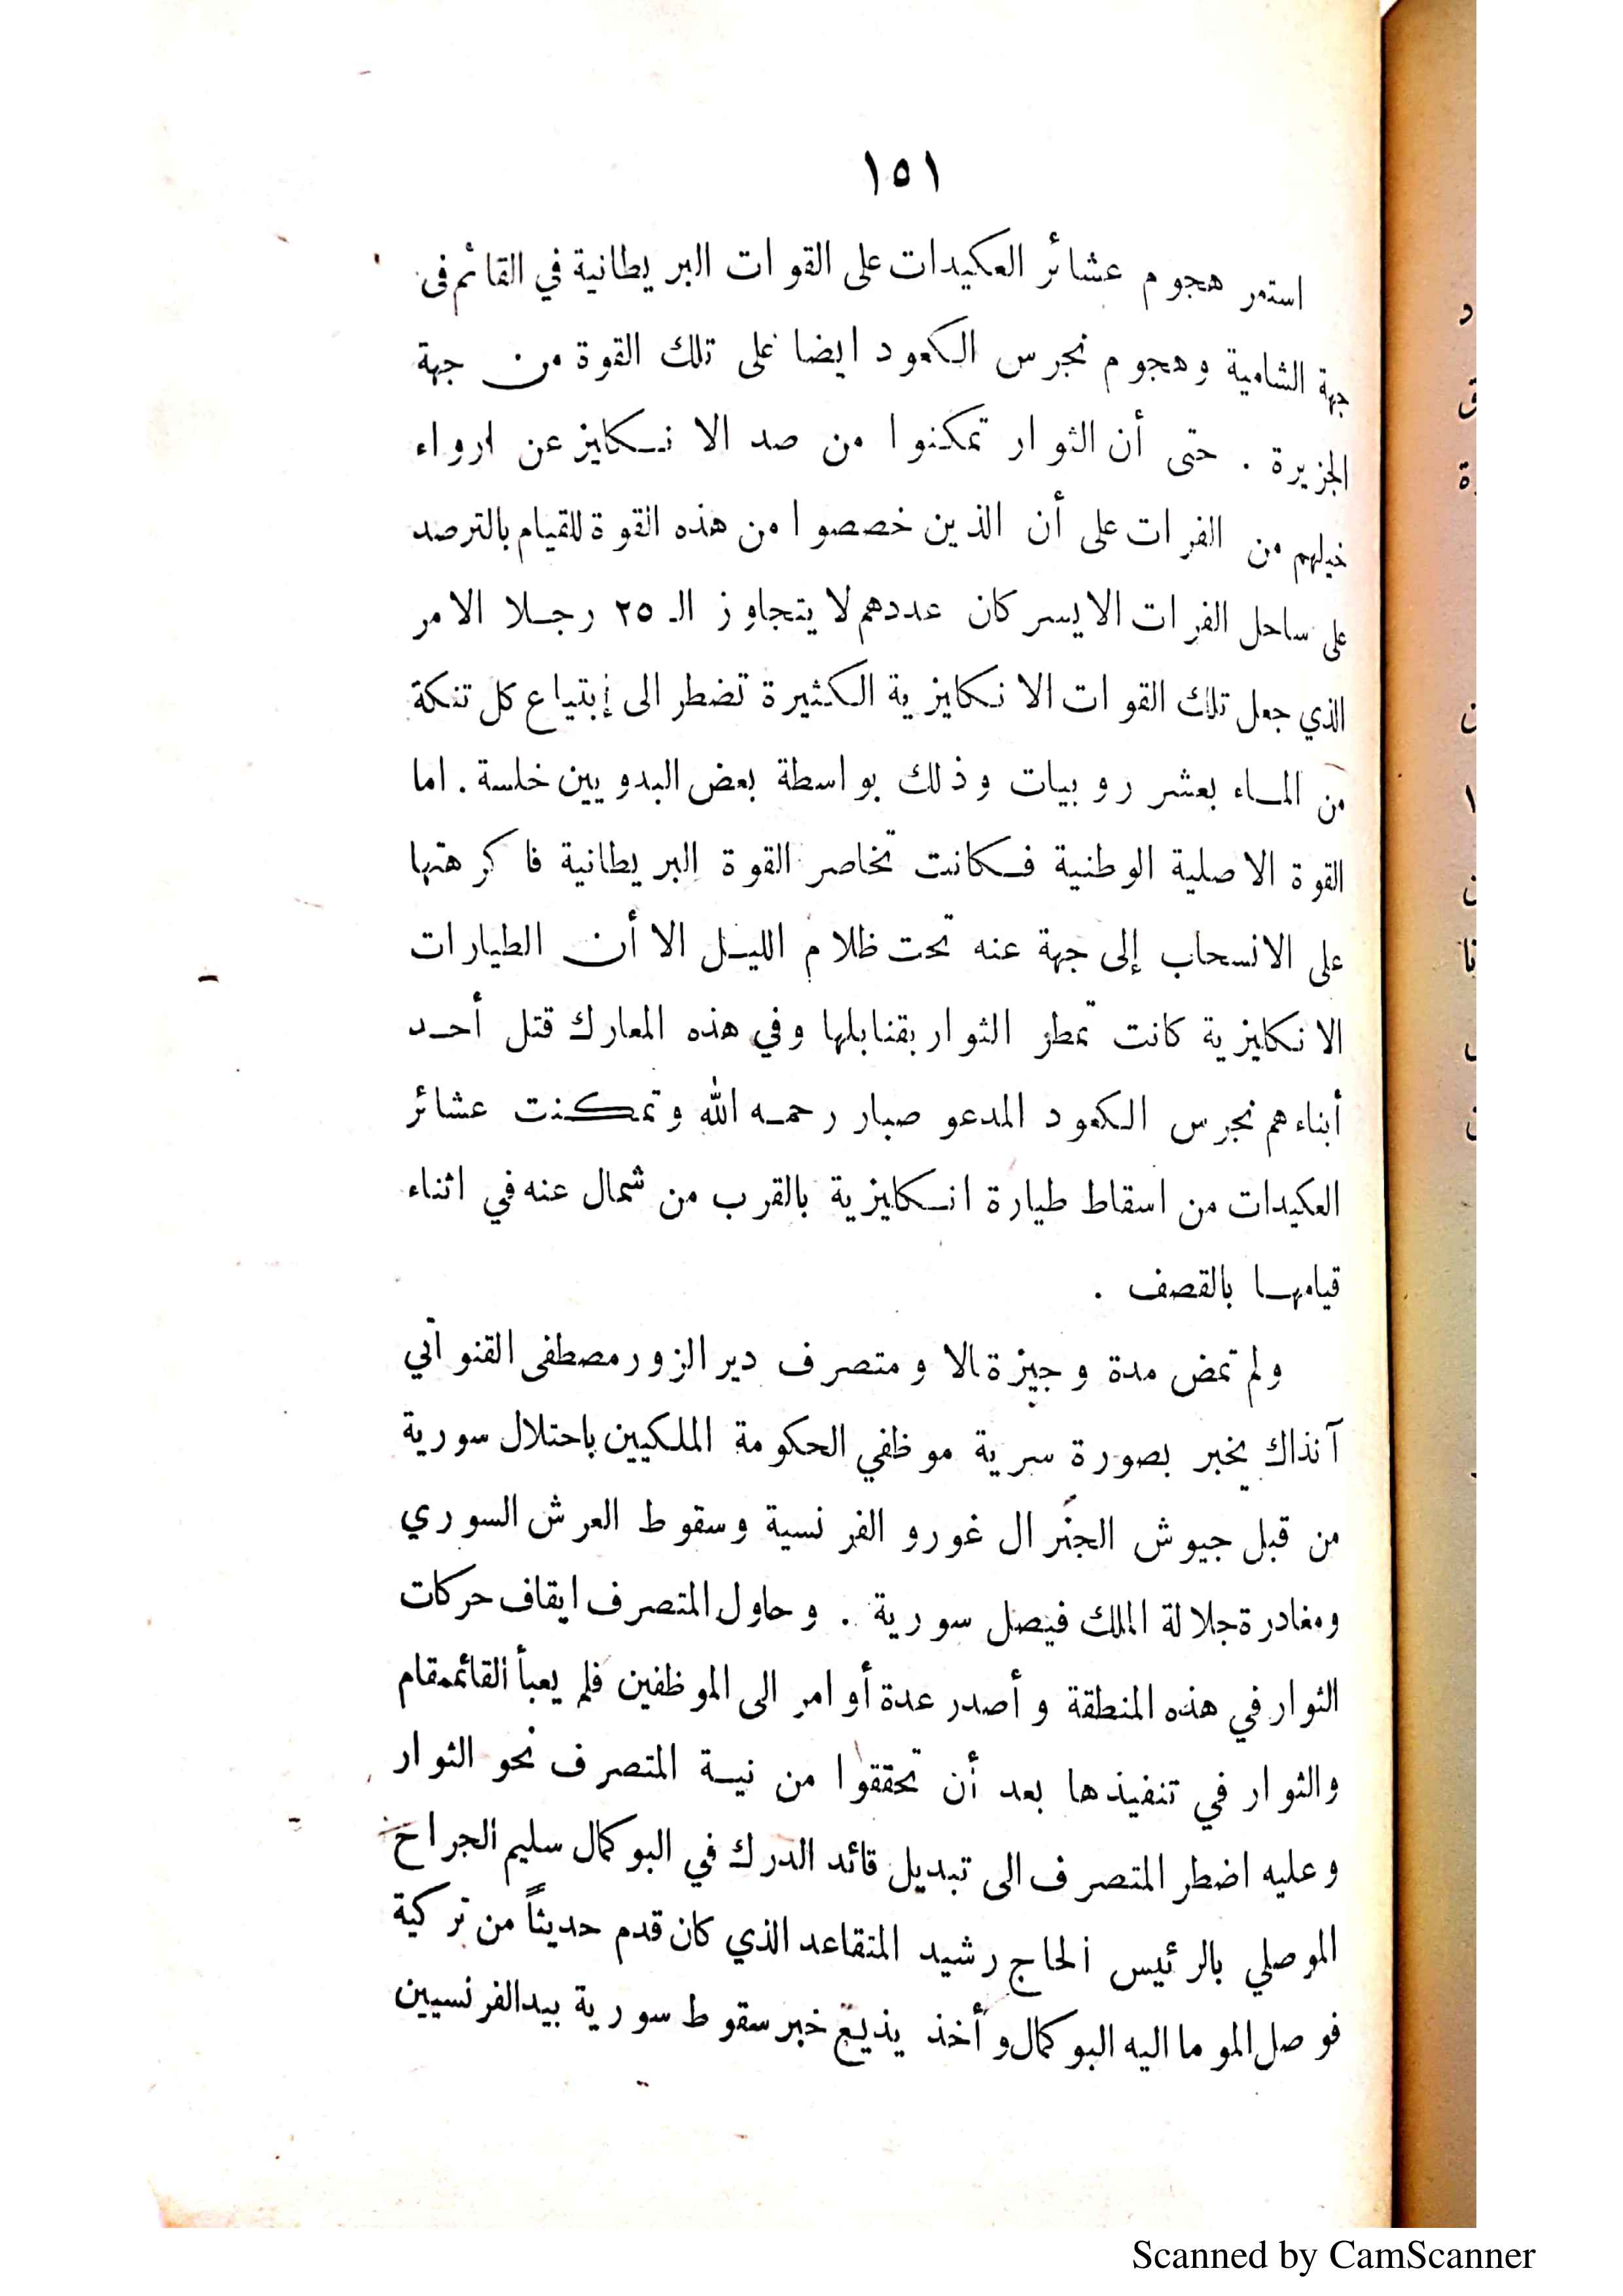 ١٥١
استمر هجوم عشائر العكيدات على القوات البريطانية في القائم فى
جهة الشامية وهجوم نجرس الكعود ايضا على تلك القوة من جهة
الجزيرة . حتى أن الثوار تمكنوا من صد الانكليز عن ارواء
خيلهم من الفرات على أن الذين خصصوا من هذه القوة للقيام بالترصد
على ساحل الفرات الايسر كان عددهم لا يتجاوز الـ ٢٥ رجلا الامر
الذي جعل تلك القوات الانكليزية الكثيرة تضطر الى إبتياع كل تنكة
من الماء بعشر روبيات وذلك بواسطة بعض البدويين خلسة . اما
القوة الاصلية الوطنية فكانت تحاصر القوة البريطانية فاكرهتها
على الانسحاب إلى جهة عنه تحت ظلام الليل الا أن الطيارات
الانكليزية كانت تمطر الثوار بقنابلها وفي هذه المعارك قتل أحد
أبناءهم نجرس الكعود المدعو صبار رحمه الله وتمكنت عشائر
العكيدات من اسقاط طيارة انكليزية بالقرب من شمال عنه في اثناء
قيامها بالقصف .
ولم تمض مدة وجيزة الا ومتصرف دير الزور مصطفى القنواتي
آنذاك يخبر بصورة سرية موظفي الحكومة الملكيين باحتلال سورية
من قبل جيوش الجنرال غورو الفرنسية وسقوط العرش السوري
ومغادرة جلالة الملك فيصل سورية . وحاول المتصرف ايقاف حركات
الثوار في هذه المنطقة وأصدر عدة أوامر الى الموظفين فلم يعبأ القائممقام
والثوار في تنفيذها بعد أن تحققوا من نية المتصرف نحو الثوار
وعليه اضطر المتصرف الى تبديل قائد الدرك في البوكمال سليم الجراح
الموصلي بالرئيس الحاج رشيد المتقاعد الذي كان قدم حديثاً من تركية
فوصل الموما اليه البوكمال وأخذ يذيع خبر سقوط سورية بيد الفرنسيين
Scanned by CamScanner